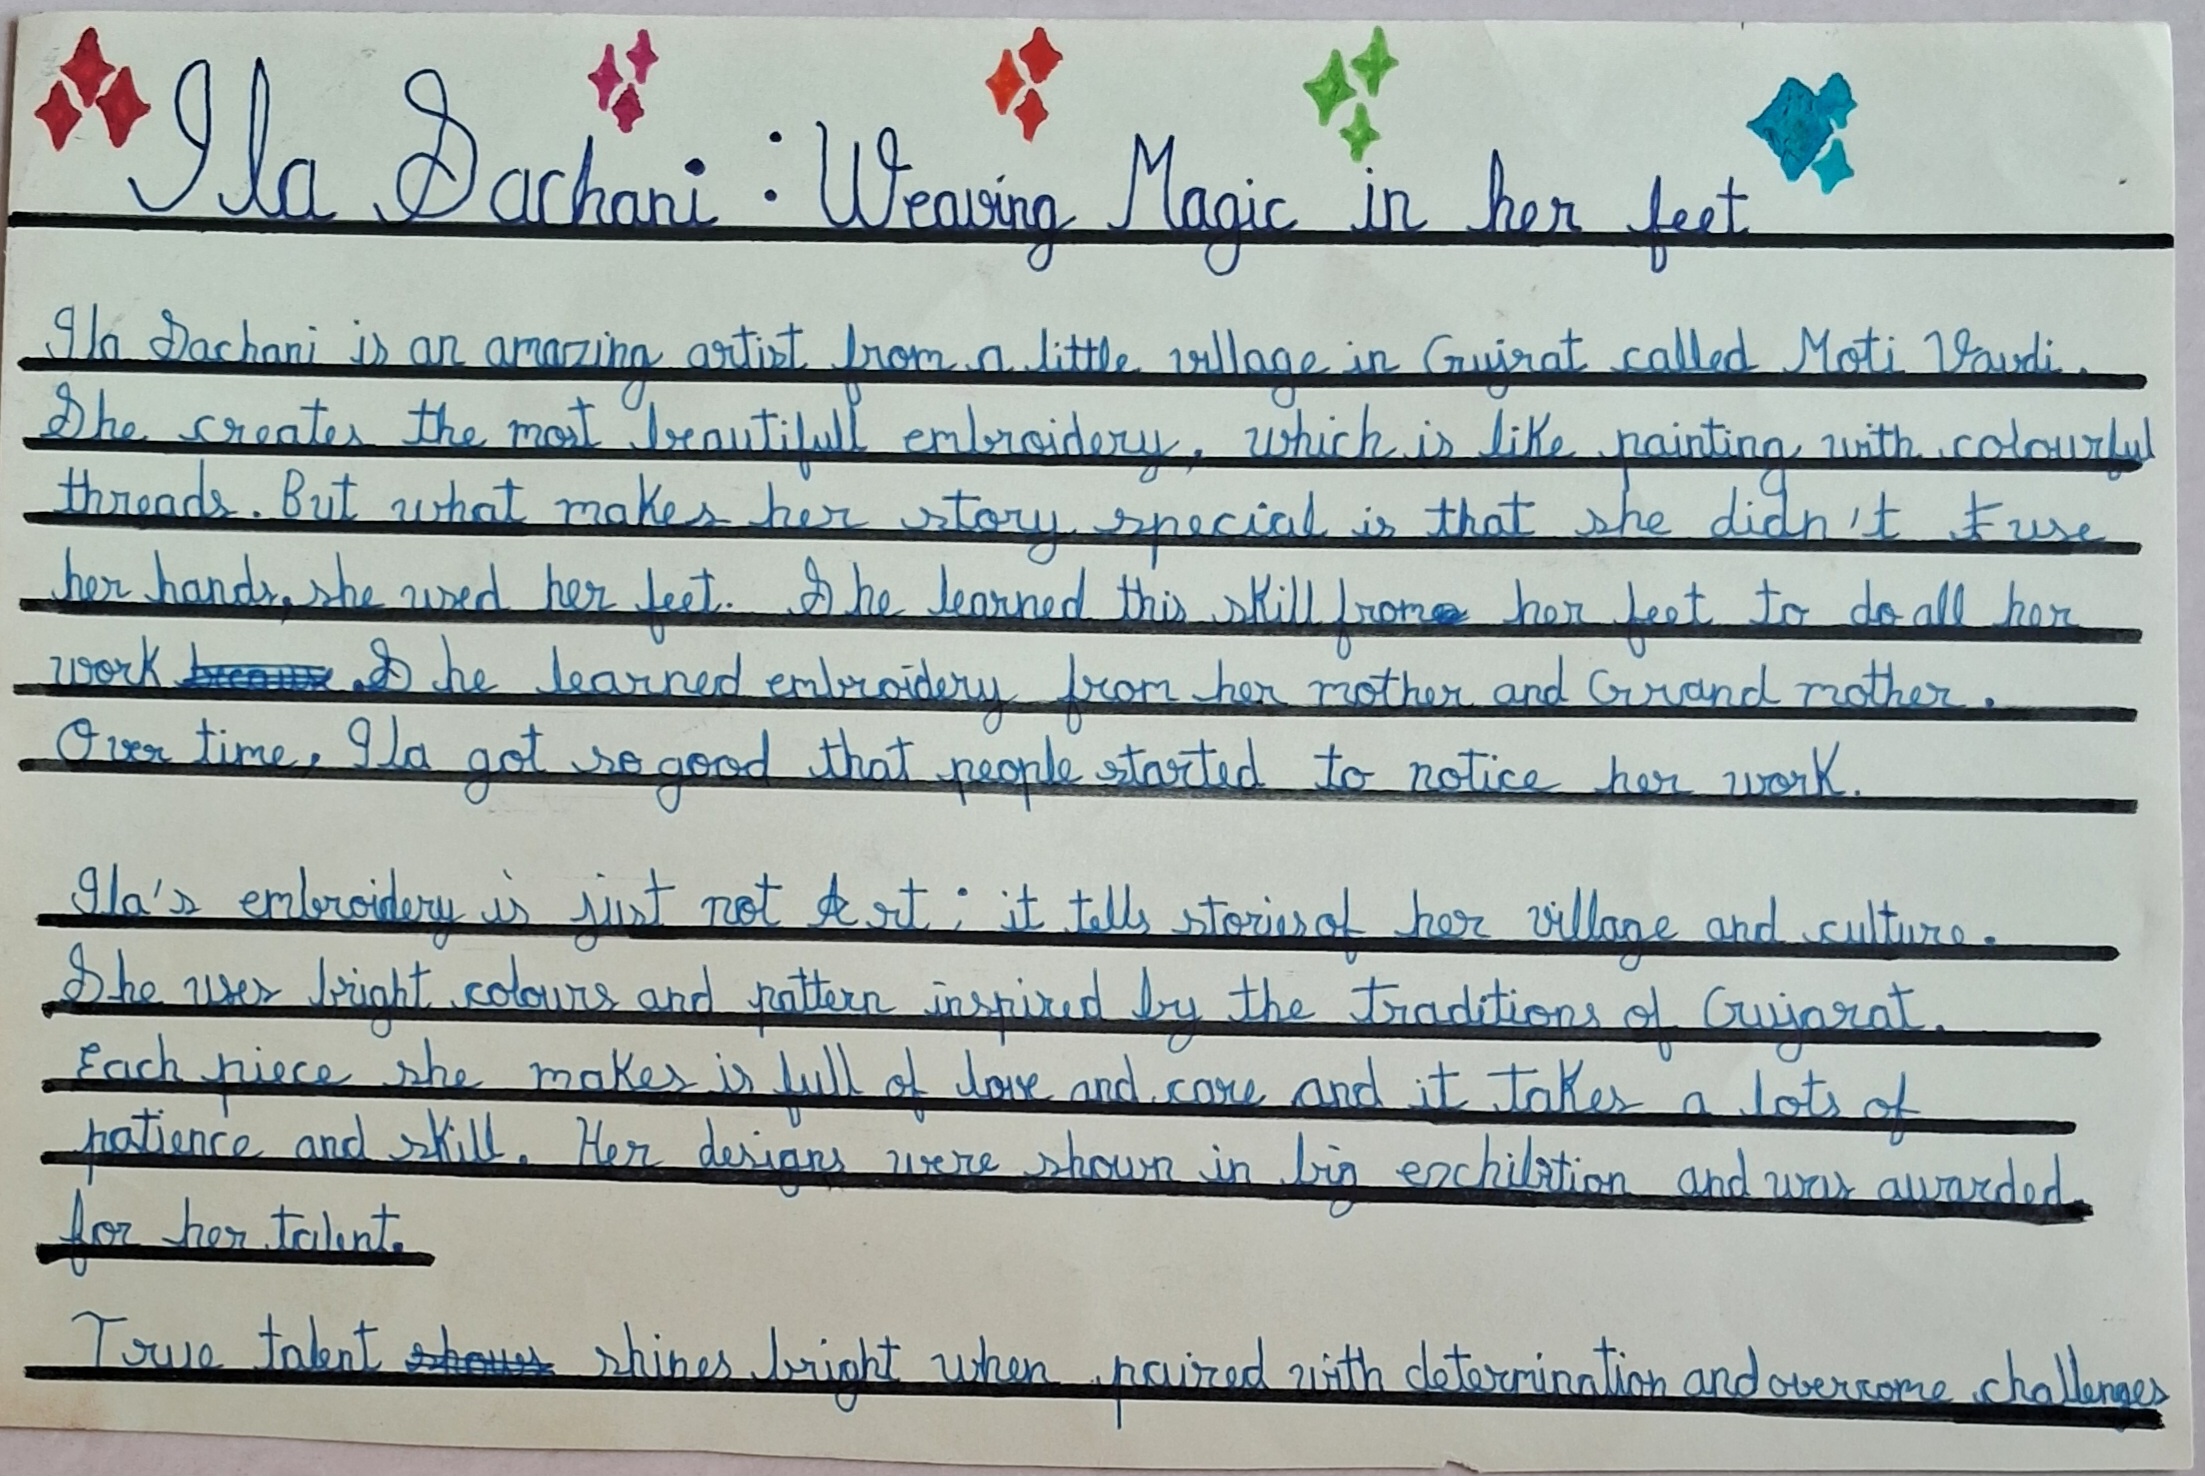 Ila Sachani : Weaving Magic in her feet
Ila Sachani is an amazing artist from a little village in Gujrat called Moti Vavdi.
She creates the most beautifull embroidery, which is like painting with colourful
threads. But what makes her story special is that she didn't use
her hands, she used her feet. She learned this skill from her feet to do all her
work She learned embroidery from her mother and Grand mother.
Over time, Ila got so good that people started to notice her work.
Ila's embroidery is just not Art ; it tells stories of her village and culture.
She uses bright colours and pattern inspired by the traditions of Gujarat.
Each piece she makes is full of love and care and it takes a lots of
patience and skill. Her designs were shown in big exchibition and was awarded
for her talent.
True talent shines bright when paired with determination and overcome challenges